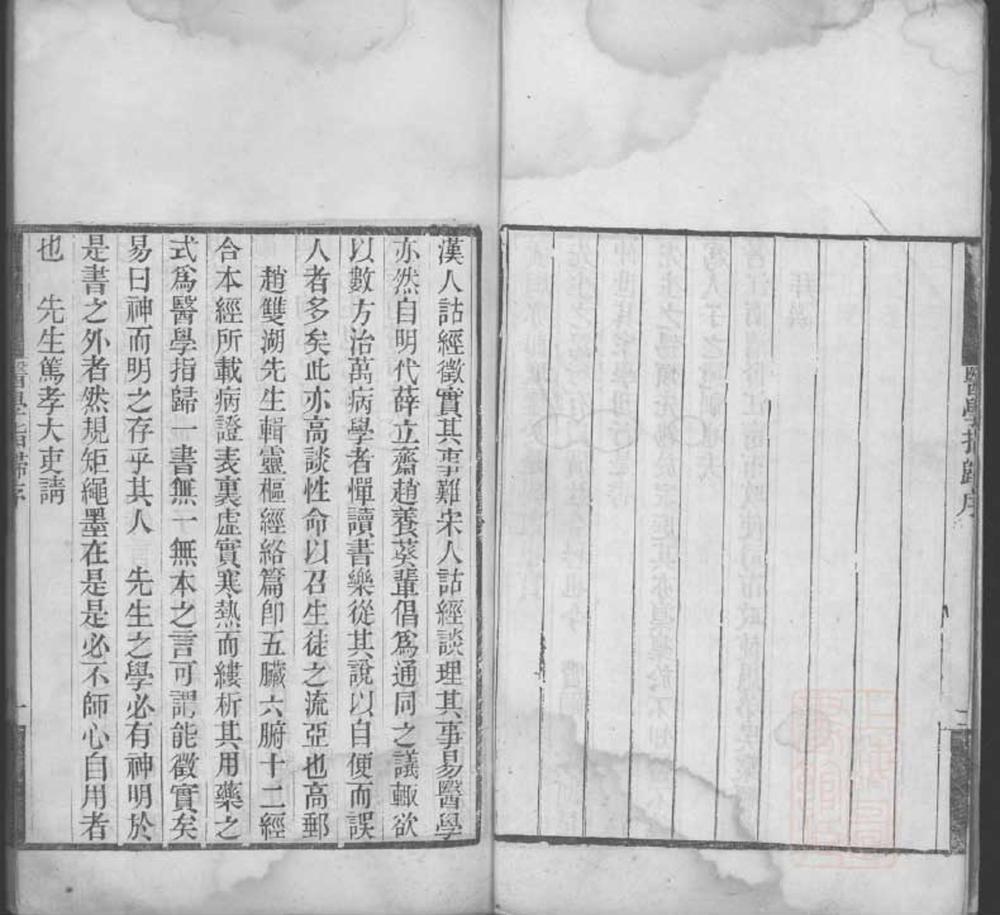 醫學指歸序
二
漢人詁經徵實其事難宋人詁經談理其事易醫學
亦然自明代薛立齋趙養葵輩倡爲通同之議輒欲
以數方治萬病學者憚讀書樂從其說以自便而誤
人者多矣此亦高談性命以召生徒之流亞也高郵
趙雙湖先生輯靈樞經絡篇卽五臟六腑十二經
合本經所載病證表裏虛實寒熱而縷析其用藥之
式爲醫學指歸一書無一無本之言可謂能徵實矣
易曰神而明之存乎其人 先生之學必有神明於
是書之外者然規矩繩墨在是是必不師心自用者
也 先生篤孝大吏請
醫學指歸序
一